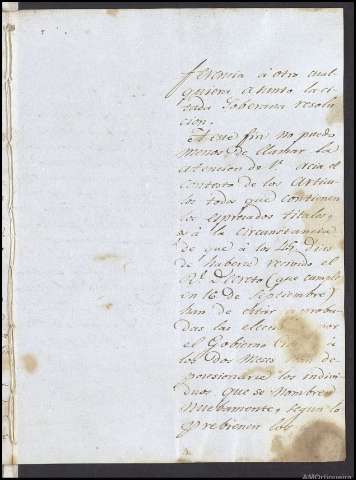 ferencia á otro cual
quiera asunto la ci
tada Soberana resolu
cion.
A este fin no puedo
menos de llamar la
atencion de V.
contesto de los Articu
los todos que contienen
los espresados titulos,
y á la circunstancia
de que á los 45 dias
de haberse recivido el
Rl. Decreto (que cumple
en 16 de Septiembre)
han de estar aproba
das las elecciones por
el Gobierno
los dos meses han de
posesionarse los indivi
duos que se nombren
nuebamente, segun lo
prebienen los
AMOrtigueira